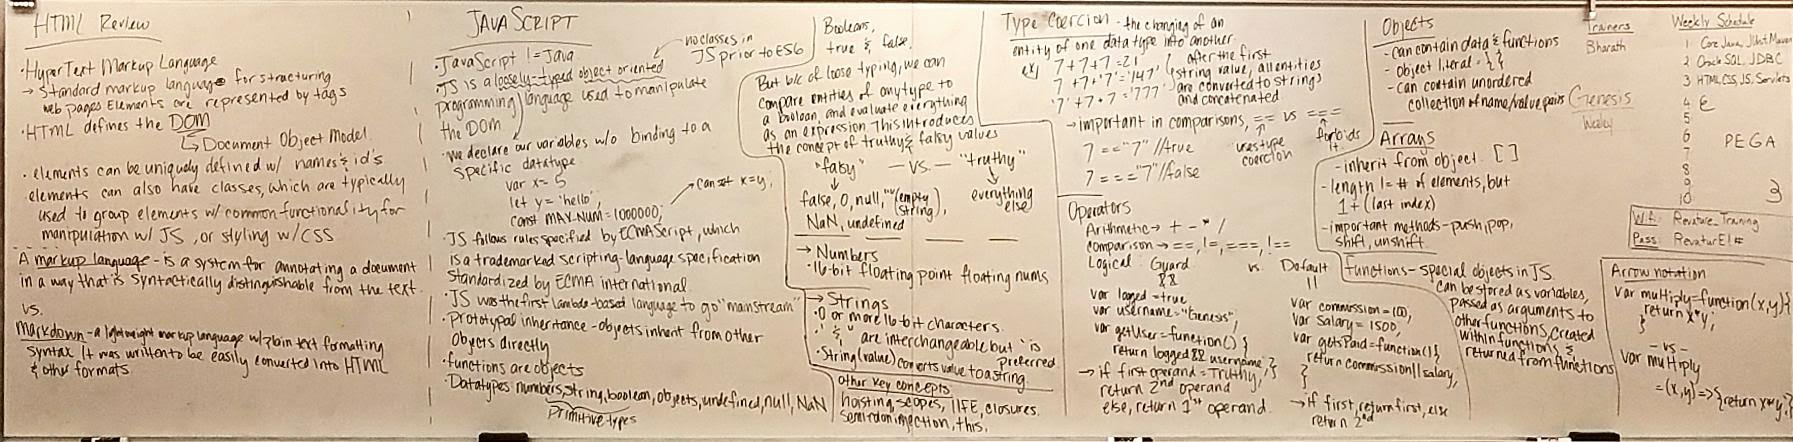 HTML Review
· HyperText Markup Language
→ Standard markup language for structuring
web pages Elements are represented by tags
· HTML defines the DOM
↳ Document Object Model
· elements can be uniquely defined w/ names & id's
elements can also have classes, which are typically
used to group elements w/ common functionality for
manipulation w/ JS, or styling w/ CSS
A markup language - is a system for annotating a document
in a way that is syntactically distinguishable from the text.
vs.
Markdown - a lightweight markup language w/ plain text formatting
syntax It was written to be easily converted into HTML
& other formats
JAVASCRIPT
· JavaScript != Java
no classes in
JS prior to ES6
· JS is a loosely-typed object oriented
programming language used to manipulate
the DOM
· We declare our variables w/o binding to a
specific datatype
var x = 5
let y = 'hello';
const MAX-NUM = 1000000;
→ can set x = y;
· JS follows rules specified by ECMAScript, which
is a trademarked scripting-language specification
standardized by ECMA international
· JS was the first lambda-based language to go "mainstream"
· Prototypal inheritance - objects inherit from other
objects directly
· functions are objects
· Datatypes: numbers, string, boolean, objects, undefined, null, NaN
primitive types
Booleans,
true & false.
But b/c of loose typing, we can
compare entities of any type to
a boolean, and evaluate everything
as an expression. This introduces
the concept of truthy & falsy values
"falsy" — vs. — "truthy"
false, 0, null, "" (empty string),
NaN, undefined
everything
else
→ Numbers
· 16-bit floating point floating nums
→ Strings
· 0 or more 16-bit characters.
· ' & " are interchangeable but ' is
preferred
· String(value) converts value to a string
other key concepts
hoisting, scopes, IIFE, closures.
semicolon injection, this,
Type Coercion - the changing of an
entity of one data type into another
ex) 7 + 7 + 7 = 21
7 + 7 + '7' = '147'
'7' + 7 + 7 = '777'
after the first
string value, all entities
are converted to strings
and concatenated
→ important in comparisons, == vs ===
uses type
coercion
forbids
it.
7 == "7" //true
7 === "7" //false
Operators
Arithmetic → + - * /
comparison → ==, !=, ===, !==
Logical: Guard vs. Default
&& ||
var logged = true
var username = "Genesis";
var getUser = function() {
return logged && username;
}
→ if first operand = Truthy,
return 2nd operand
else, return 1st operand.
var commission = 100;
var salary = 1500;
var getsPaid = function() {
return commission || salary;
}
→ if first, return first, else
return 2nd
Objects
- can contain data & functions
- object literal = { }
- can contain unordered
collection of name/value pairs
Arrays
- inherit from object. [ ]
- length != # of elements, but
1 + (last index)
- important methods - push, pop,
shift, unshift
functions - special objects in JS
can be stored as variables,
passed as arguments to
other functions, created
within functions, &
returned from functions
Trainers
Bharath
Genesis
Wesley
Weekly Schedule
1 Core Java, JUnit, Maven
2 Oracle SQL, JDBC
3 HTML, CSS, JS, Servlets
4
5
6
7
8
9
10
PEGA
3
Wifi: Revature_Training
Pass:
Arrow notation
var multiply = function(x,y){
return x*y;
}
- vs -
var multiply
= (x,y) => {return x*y;}